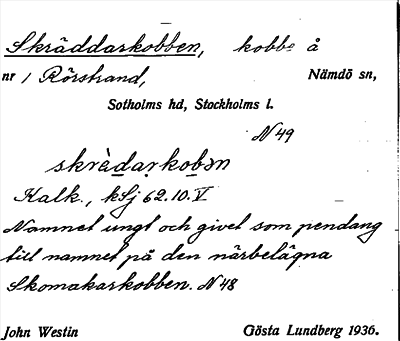 Skräddarkobben, kobbe å
nr 1 Rörstrand, Nämdö sn,
Sotholms hd, Stockholms l.
N 49
skrὰdarkobən
Kalk., kSj 62.10.V
Namnet ungt och givet som pendang
till namnet på den närbelägna
Skomakarkobben. N 48
John Westin Gösta Lundberg 1936.